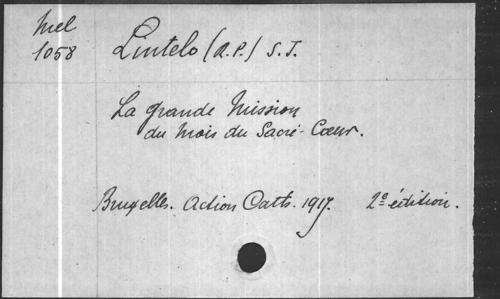 Mel
1058
Lintelo (R.P.) S.J.
La grande Mission
du Mois du Sacré-Cœur.
Bruxelles. Action Cath. 1917. 2e édition.